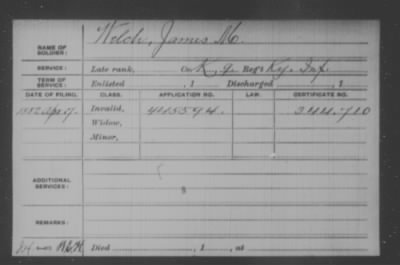 NAME OF SOLDIER: Welch, James M.
SERVICE: Late rank, Co. K, 9 Reg't Ky. Inf.
TERM OF SERVICE: Enlisted , 1 Discharged , 1
DATE OF FILING. CLASS. APPLICATION NO. LAW. CERTIFICATE NO.
1882 Apr 17. Invalid, 445594. 344.710
Widow,
Minor,
ADDITIONAL SERVICES:
REMARKS:
Died , 1 , at